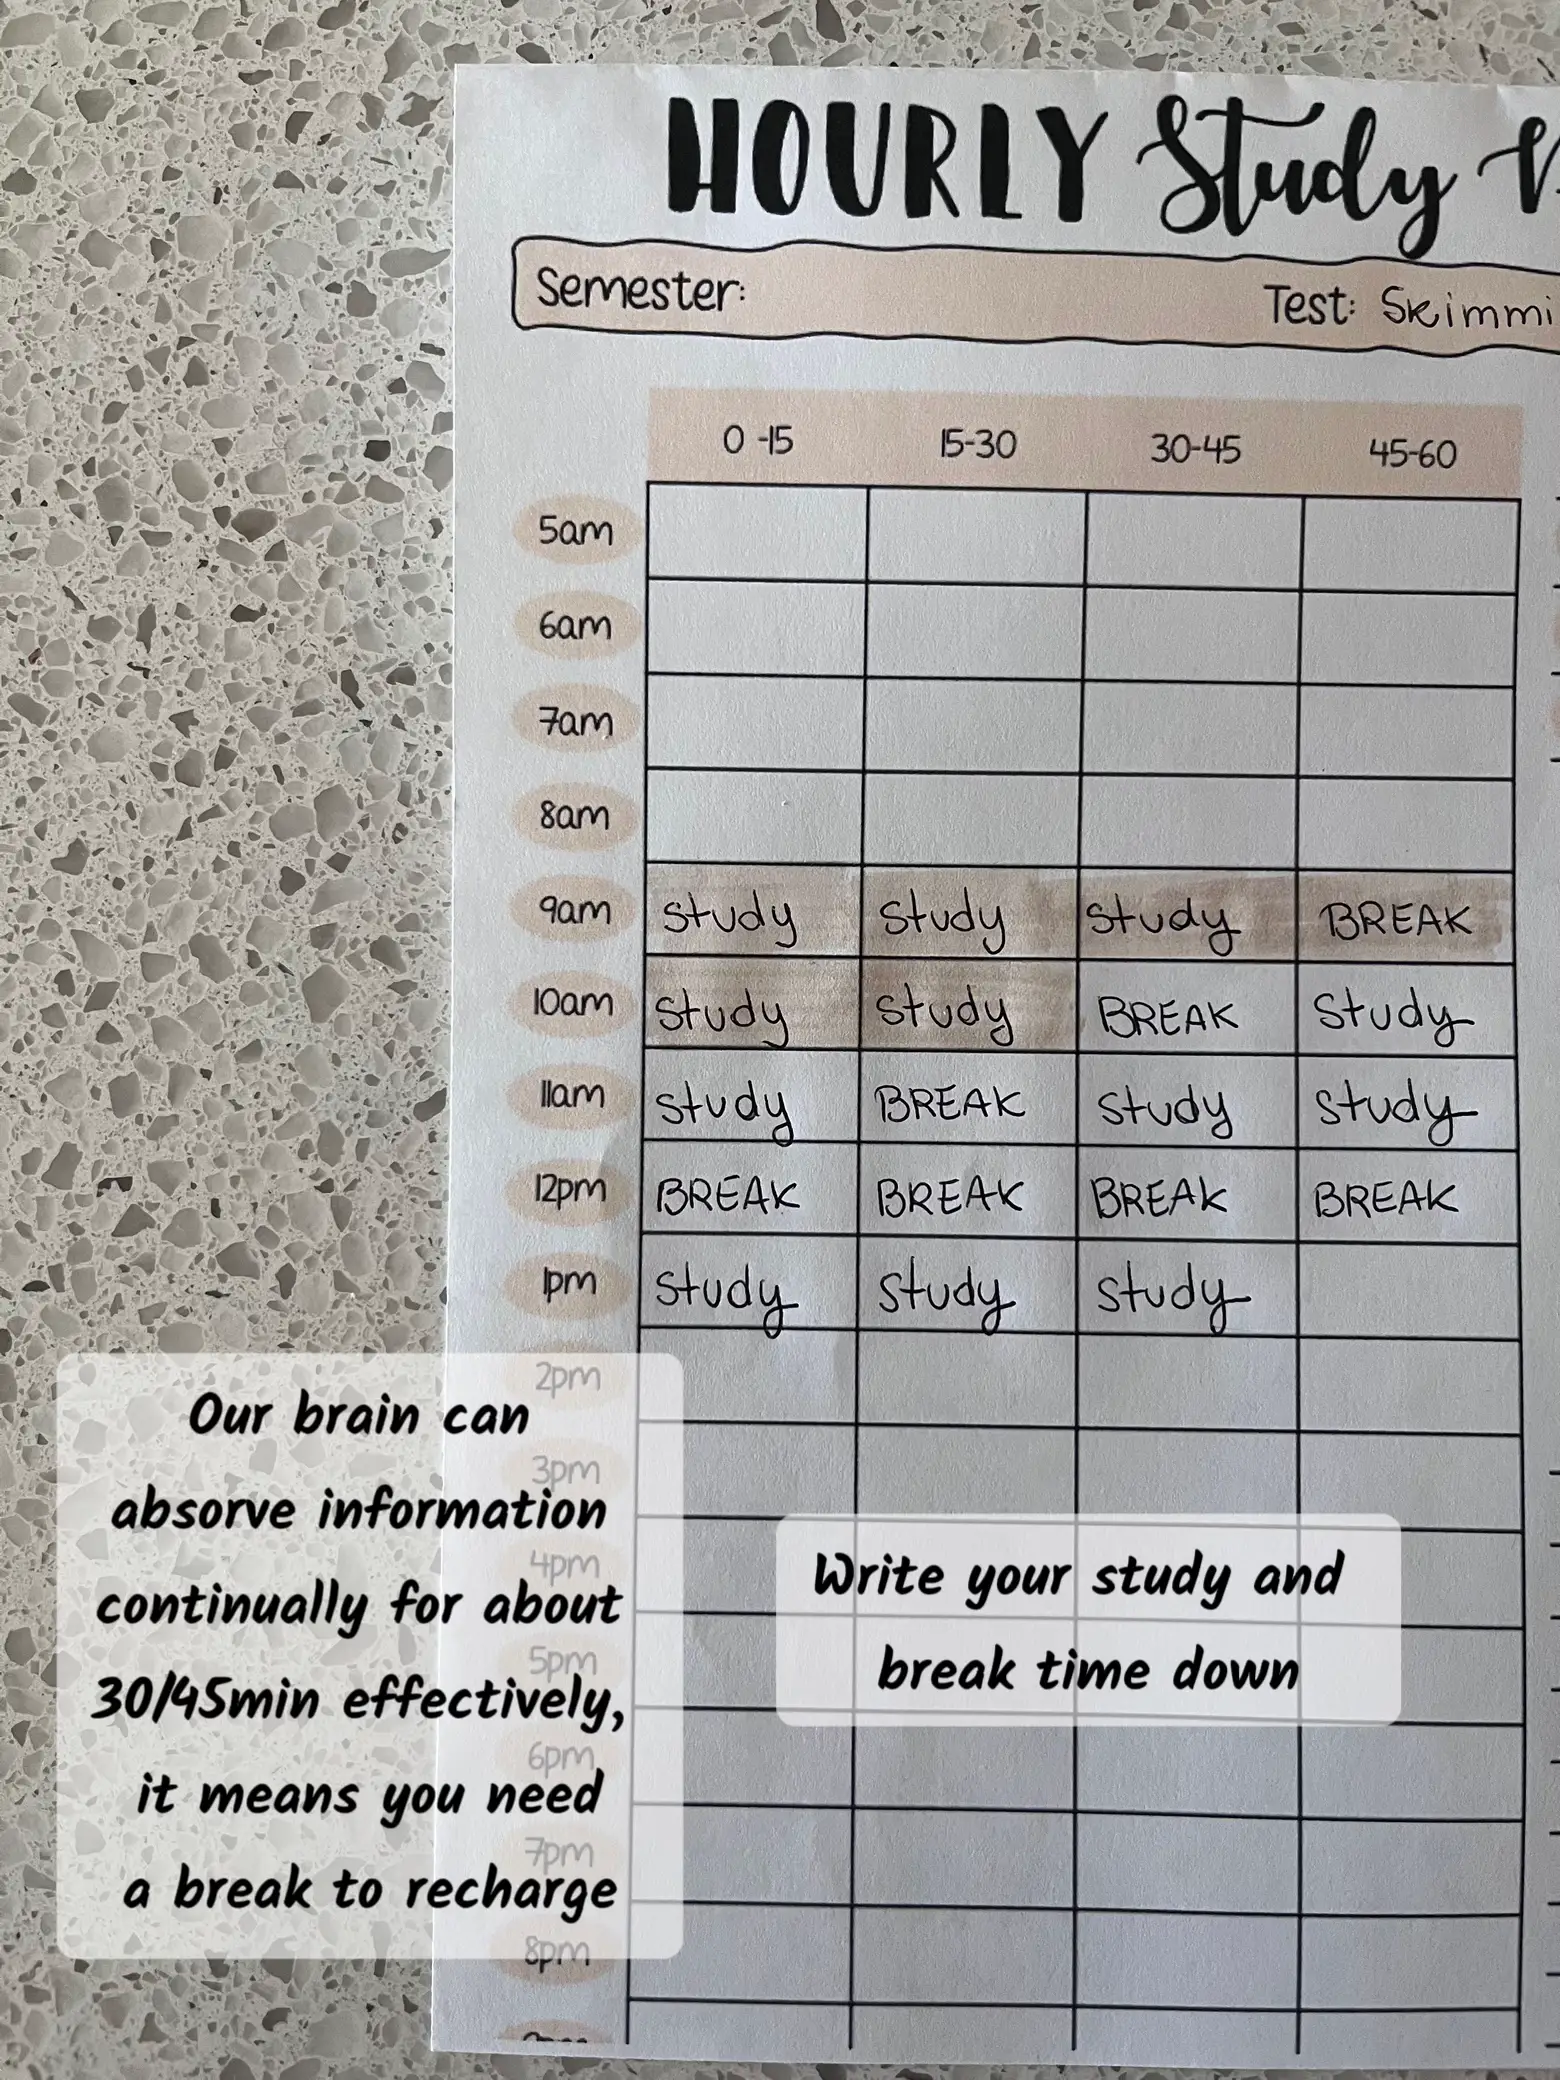 HOURLY Study
Semester:
Test: Skimmi
0-15 15-30 30-45 45-60
5am
6am
7am
8am
9am study study study BREAK
10am study study BREAK study
11am study BREAK study study
12pm BREAK BREAK BREAK BREAK
1pm study study study
2pm
3pm
4pm
5pm
6pm
7pm
8pm
Our brain can
absorve information
continually for about
30/45min effectively,
it means you need
a break to recharge
Write your study and
break time down